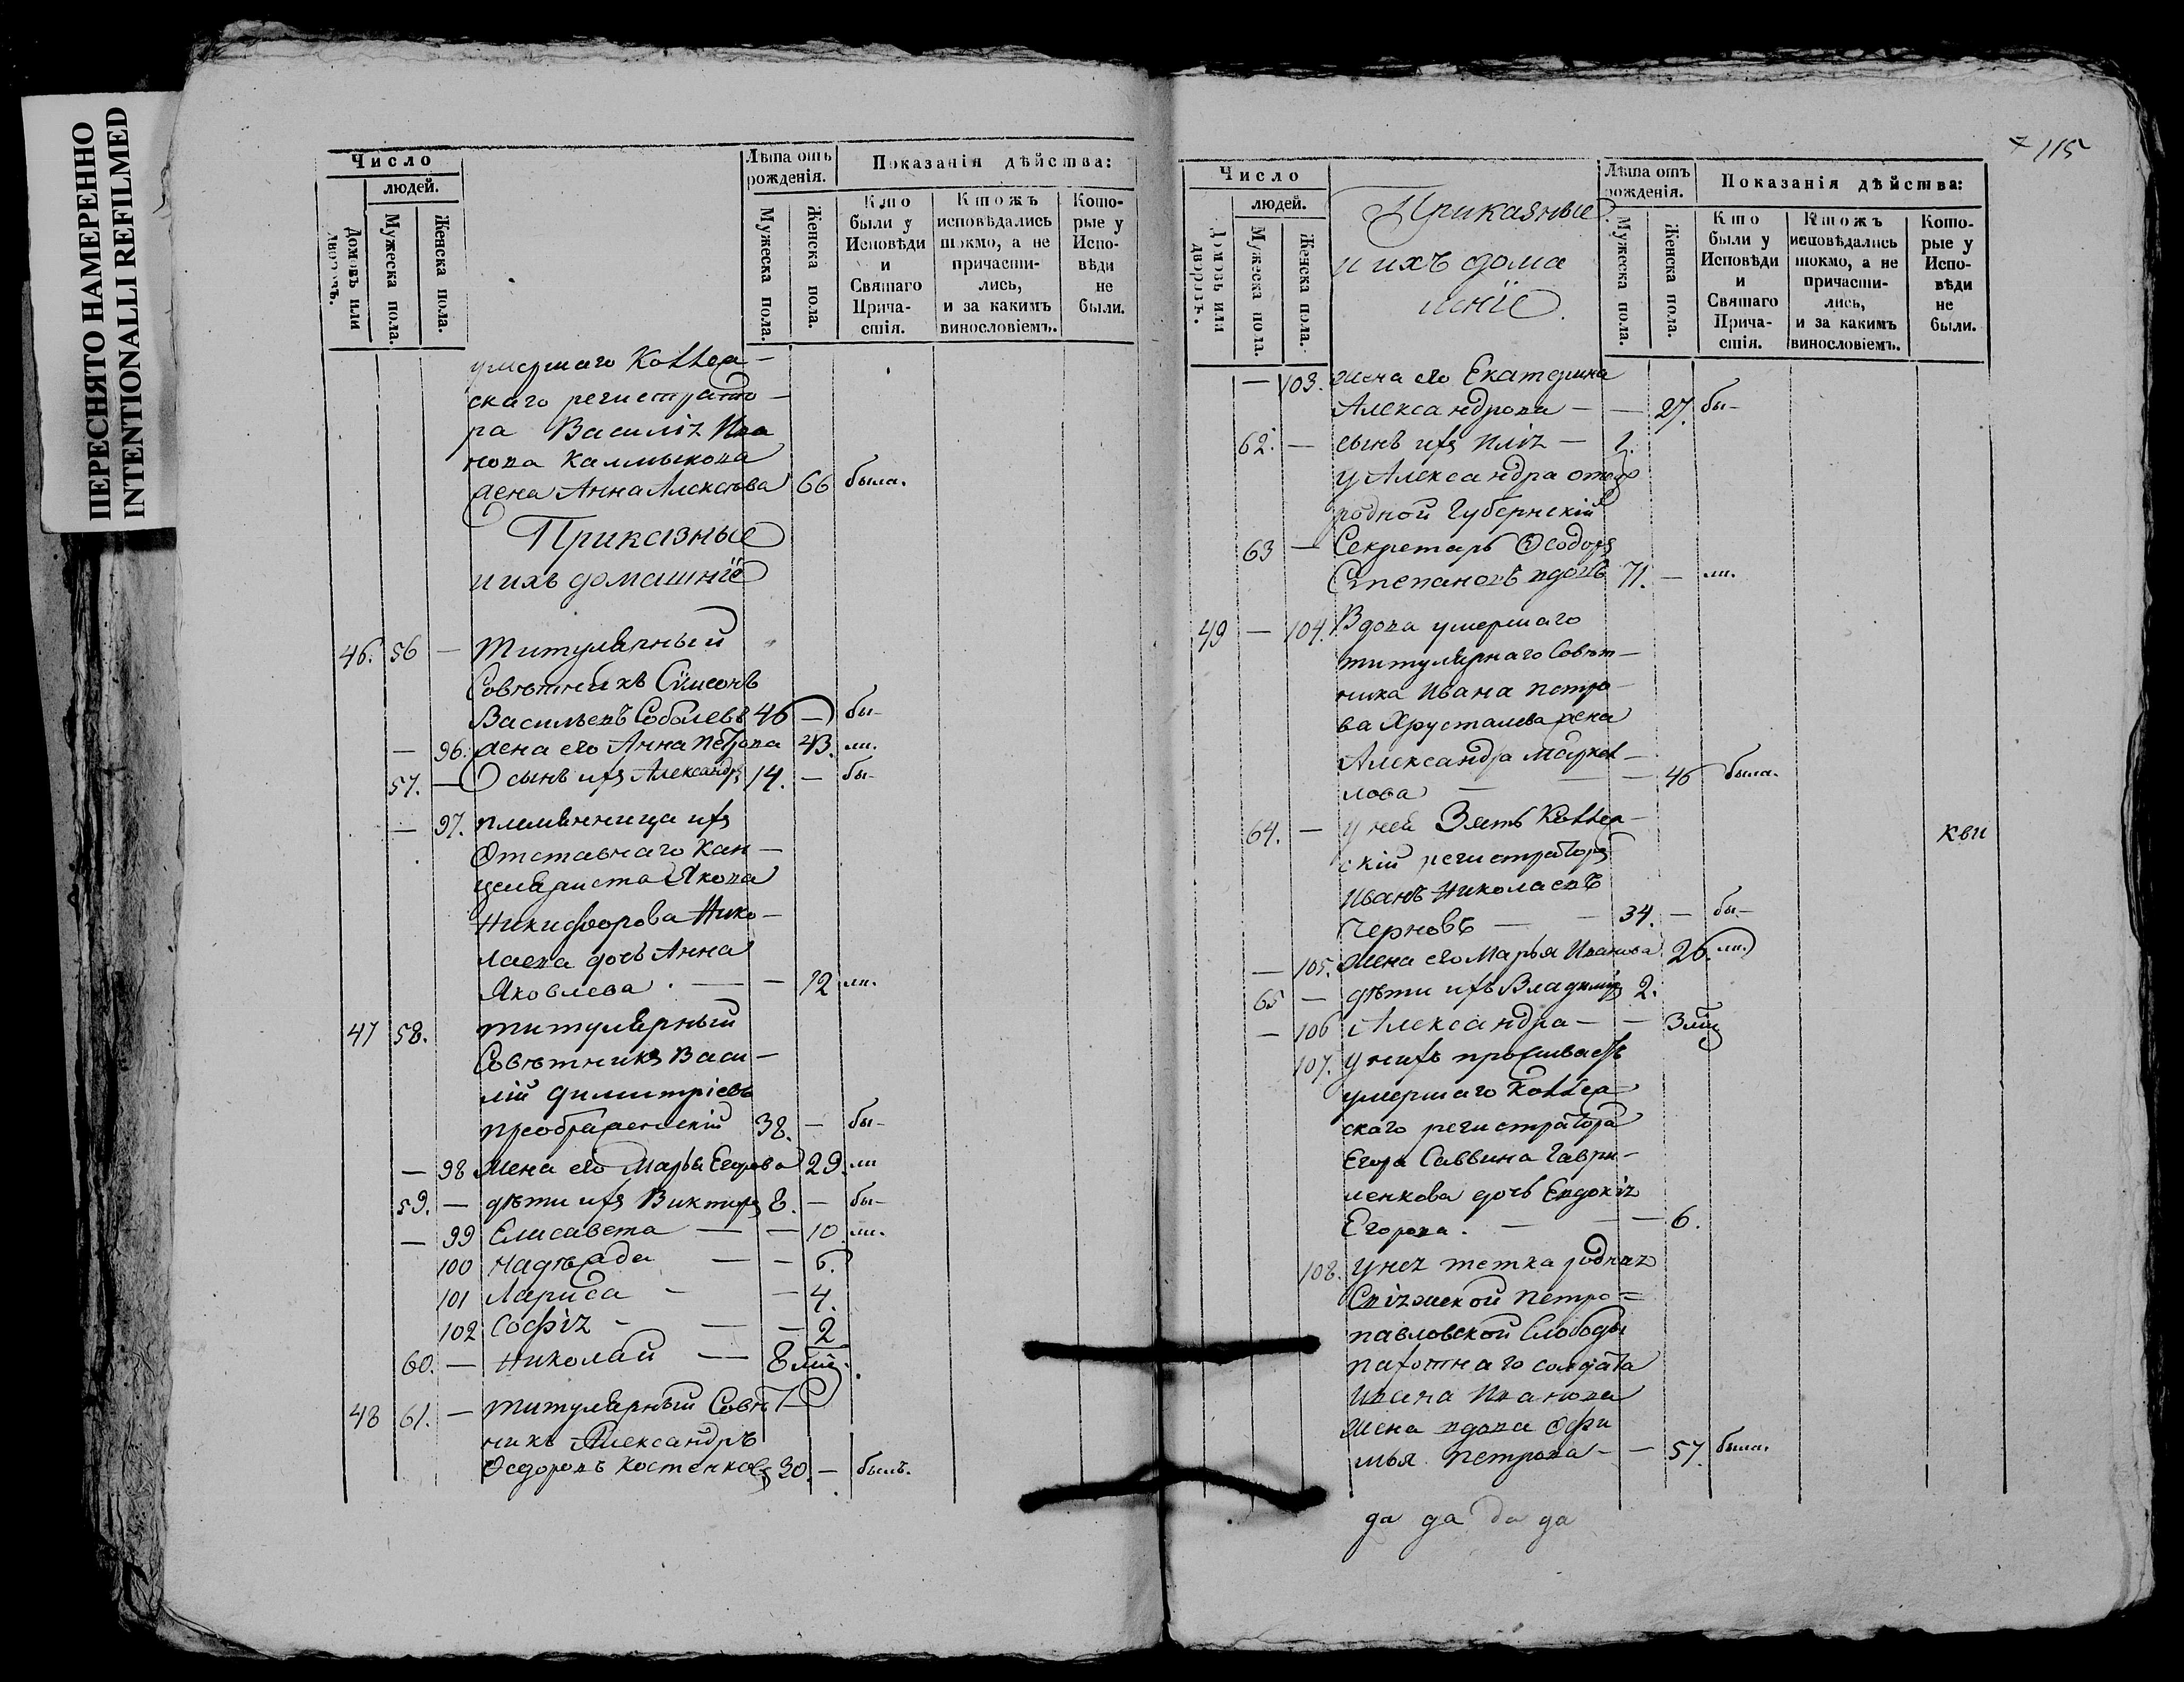 ПЕРЕСНЯТО НАМЕРЕННО
INTENTIONALLI REFILMED
Число
людей.
Домовъ или дворовъ.
Мужеска пола.
Женска пола.
Лѣта отъ рожденія.
Мужеска пола.
Женска пола.
Показанія дѣйства:
Кто были у Исповѣди и Святаго Причастія.
Ктожъ исповѣдались токмо, а не причастились, и за какимъ винословіемъ.
Которые у Исповѣди не были.
умершаго Коллеж–
скаго регистрато–
ра Василія Ива
нова Калмыкова
жена Анна Алексѣева 66 была.
Приказные
и ихъ домашніе
46. 56 — Титулярный
Совѣтникъ Сѵмеонъ
Васильевъ Соболевъ 46 — бы–
— 96. жена его Анна Петрова 43. ли.
57. — сынъ ихъ Александръ 14. — бы–
— 97. племянница ихъ
Отставнаго Кан–
целяриста Якова
Никифорова Нико–
лаева дочь Анна
Яковлева. — — 12 ли.
47 58. титулярный
Совѣтникъ Васи–
лій Димитріевъ
Преображенскій 38. — бы–
— 98 Жена его Марья Егорова 29. ли
59. — дѣти ихъ Викторъ 8. — бы–
— 99 Елисавета — — 10. ли.
100 Надѣжда — — 6.
101 Лариса – — 4.
102 Софія – — — 2
60. — Николай — 8 мц.
48 61. — титулярный Совѣт
никъ Александръ
Ѳедоровъ Костенковъ 30. — былъ.
115
Число
людей.
Домовъ или дворовъ.
Мужеска пола.
Женска пола.
Приказные
и ихъ дома
шніе.
Лѣта отъ рожденія.
Мужеска пола.
Женска пола.
Показанія дѣйства:
Кто были у Исповѣди и Святаго Причастія.
Ктожъ исповѣдались токмо, а не причастились, и за какимъ винословіемъ.
Которые у Исповѣди не были.
— 103. жена его Екатерина
Александрова — — 27. бы–
62. — сынъ ихъ Илія — 1.
у Александра отецъ
родной Губернскій
63 — Секретарь Ѳеодоръ
Степановъ вдовъ 71. — ли.
49 — 104. Вдова умершаго
титулярнаго Совѣт–
ника Ивана Петро–
ва Хрусталева жена
Александра Маркел–
лова — — — 46 была.
64. — У ней Зять Коллеж–
скій регистраторъ
Иванъ Николаевъ
Черновъ — — 34. — бы–
— 105. Жена его Марья Иванова 26. ли.
65 — дѣти ихъ Владиміръ 2.
— 106 Александра — — 3 мц
107. У нихъ проживаетъ
умершаго Коллеж=
скаго регистратора
Егора Саввина Гаври–
ленкова дочь Евдокія
Егорова. — — — 6.
108. У нея тетка родная
Свіяжской Петро=
павловской Слободы
пахотнаго солдата
Ивана Иванова
Жена вдова Ефи
мья Петрова — — 57. была.
кви
да да да да